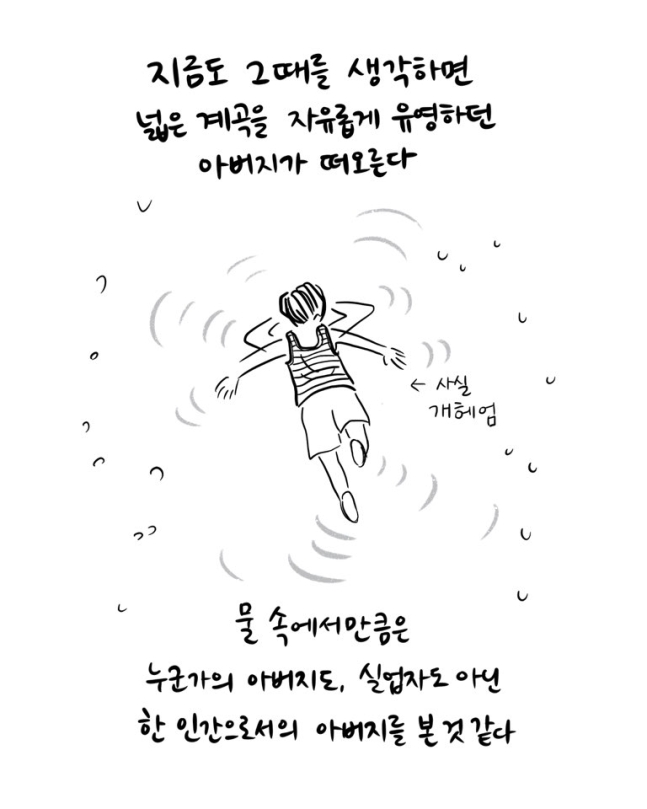 지금도 그때를 생각하면
넓은 계곡을 자유롭게 유영하던
아버지가 떠오른다
← 사실
개헤엄
물 속에서만큼은
누군가의 아버지도, 실업자도 아닌
한 인간으로서의 아버지를 본 것 같다